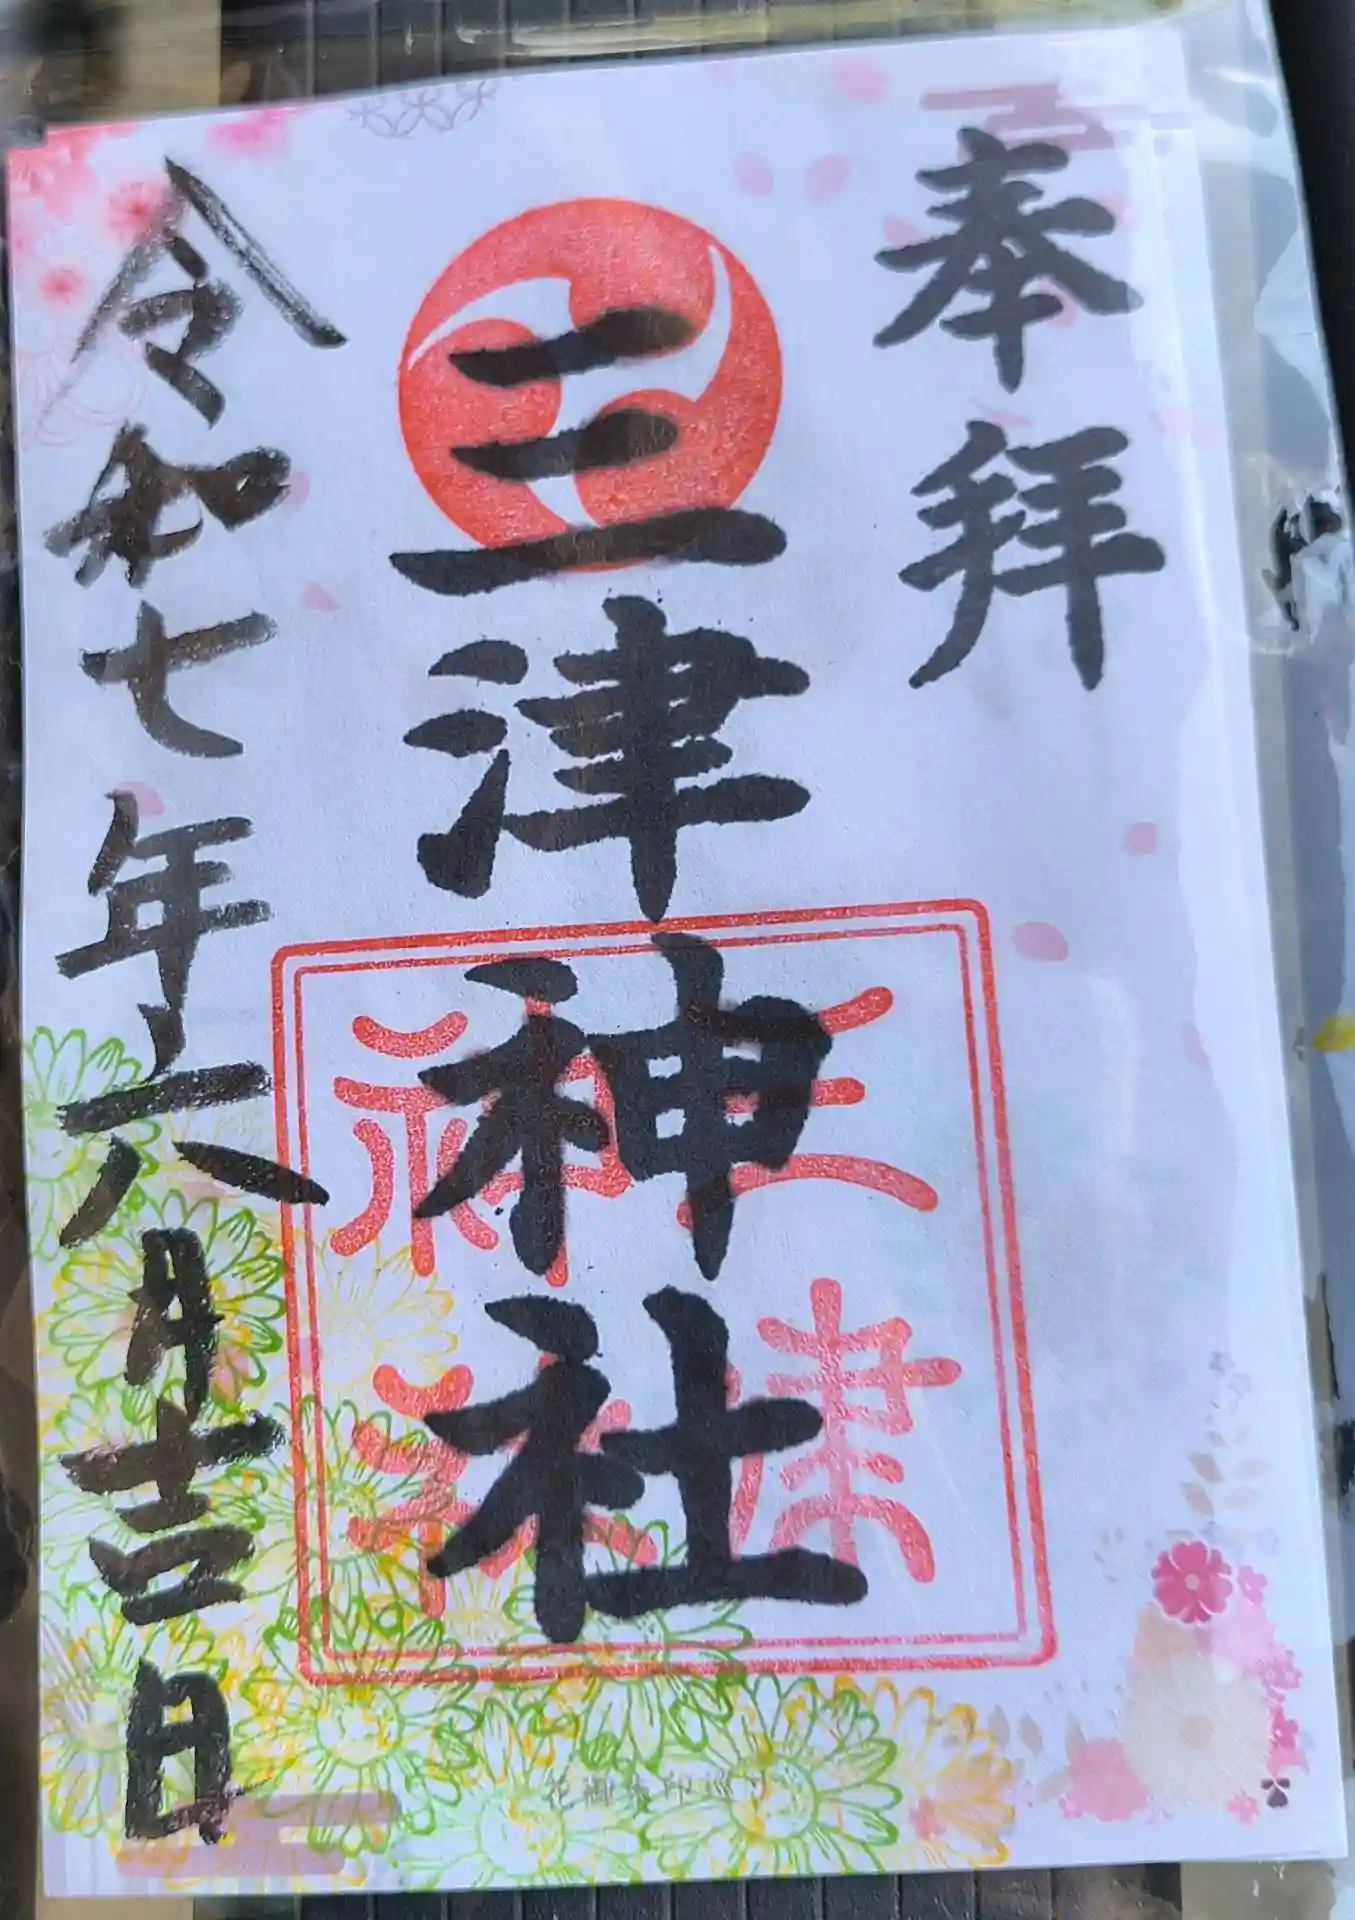 奉拝
三津神社
三津
神社
令和七年六月吉日
花御朱印巡り